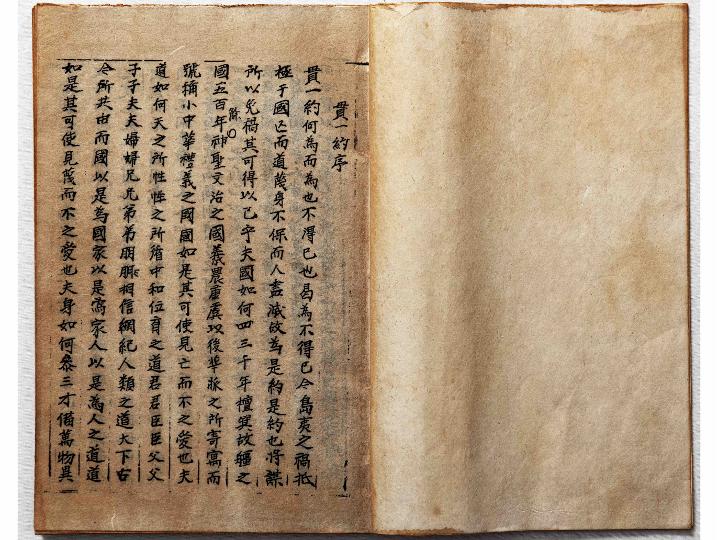 貫一約序
貫一約何為而為也不得已也曷為不得已今島夷之禍抵
極于國亡而道蔑身不保而人盡滅故為是約是約也將謀
所以免禍其可得以已乎夫國如何四三千年檀箕故疆之
國五百年神聖文治之國義農唐虞以後華脉之所寄寓而
號稱小中華禮義之國國如是其可使見亡而不之愛也夫
道如何天之所性性之所循中和位育之道君君臣臣父父
子子夫夫婦婦兄兄弟弟朋朋相信綱紀人類之道天下古
今所共由而國以是為國家以是為家人以是為人之道道
如是其可使見蔑而不之愛也夫身如何參三才備萬物異